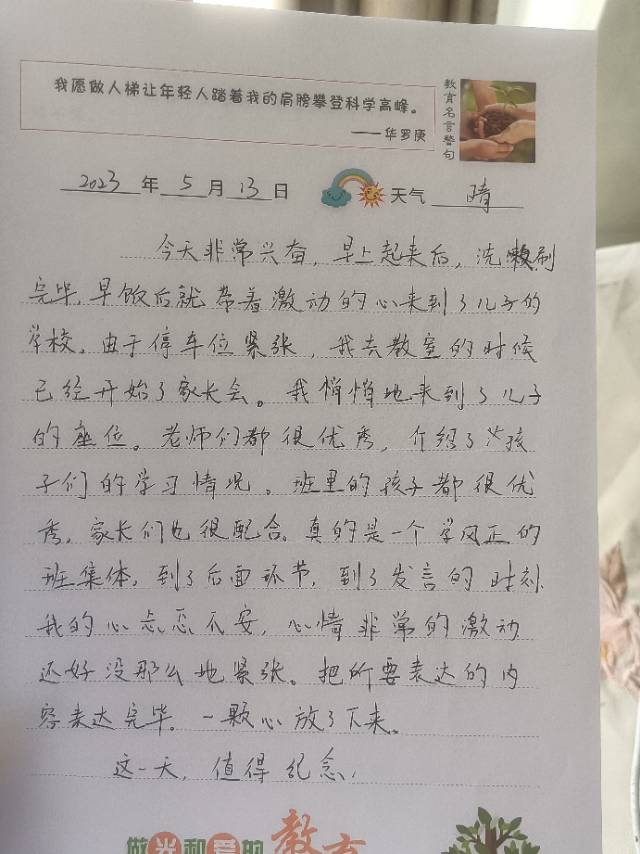 我愿做人梯让年轻人踏着我的肩膀攀登科学高峰。
——华罗庚
教育名言警句
2023 年 5 月 13 日 天气 晴
今天非常兴奋，早上起来后，洗刷
完毕，早饭后就带着激动的心来到了儿子的
学校。由于停车位紧张，我去教室的时候
已经开始了家长会。我悄悄地来到了儿子
的座位。老师们都很优秀，介绍了孩
子们的学习情况。班里的孩子都很优
秀，家长们也很配合。真的是一个学风正的
班集体，到了后面环节，到了发言的时刻
我的心忐忑不安，心情非常的激动
还好没那么地紧张。把所要表达的内
容表达完毕。一颗心放了下来。
这一天，值得纪念，
做光和爱的教育